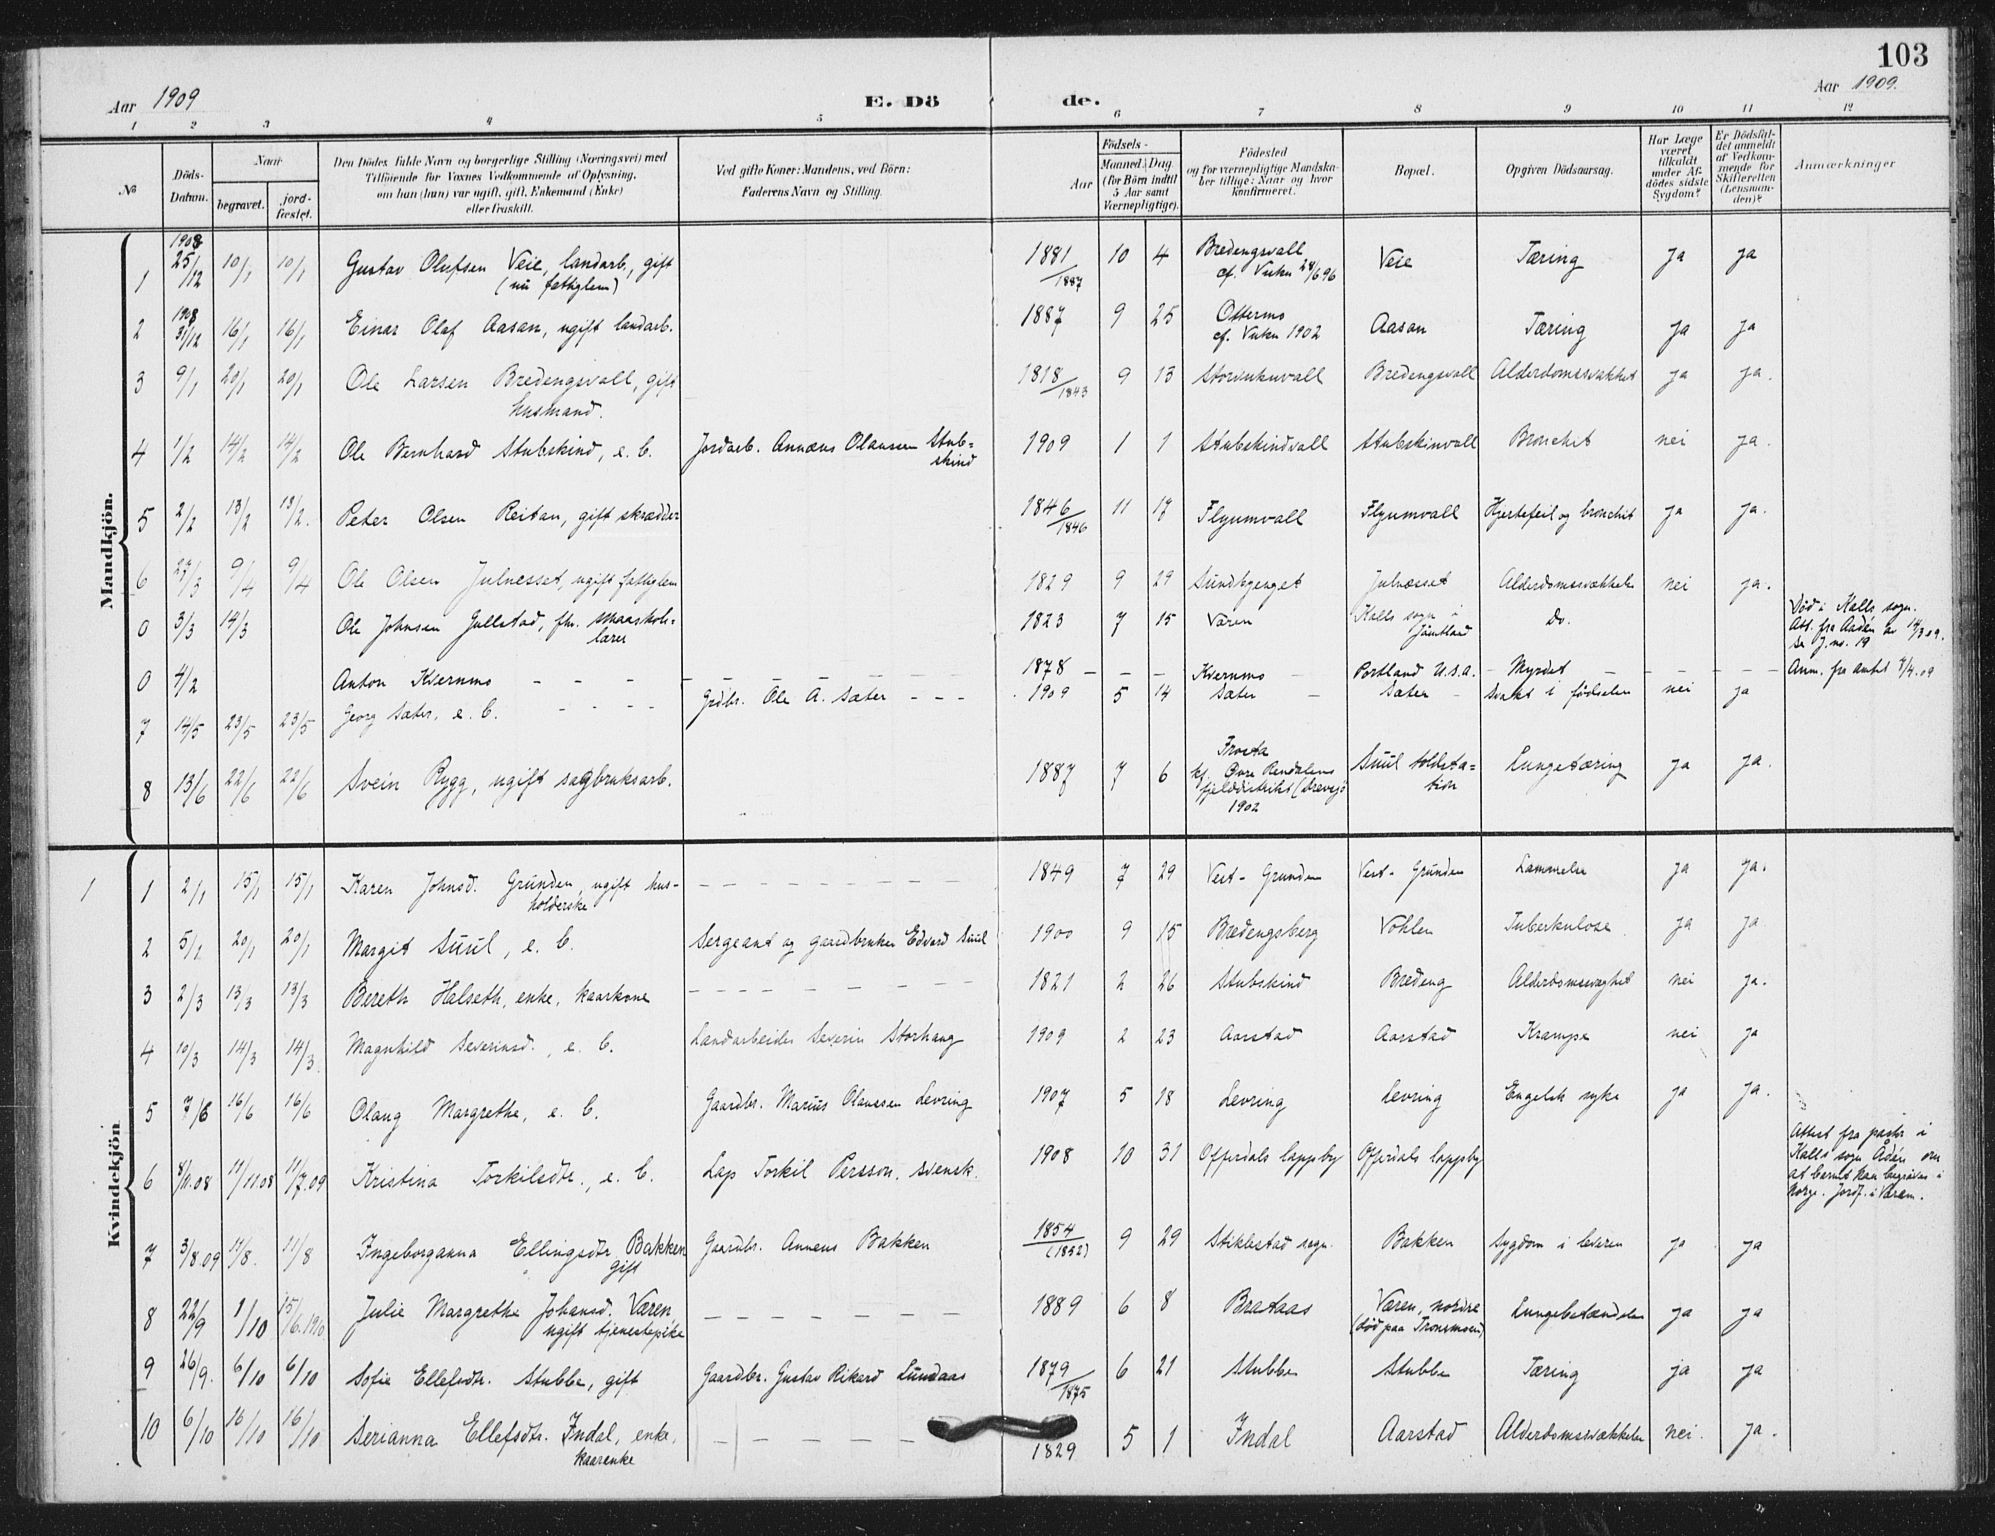 103
Aar 1909
E. Dö
de.
Aar 1909.
1 2 3 4 5 6 7 8 9 10 11 12
No
Döds-Datum.
Naar
begravet.
jord-fæstet.
Den Dödes fulde Navn og borgerlige Stilling (Næringsvei) med
Tilföiende for Voxnes Vedkommende af Oplysning,
om han (hun) var ugift, gift, Enkemand (Enke)
eller fraskilt.
Ved gifte Koner: Mandens, ved Börn:
Faderens Navn og Stilling.
Födsels-
Aar
Maaned. Dag.
(for Börn indtil
5 Aar samt
Værnepligtige).
Födested
og for værnepligtige Mandska-
ber tillige: Naar og hvor
konfirmeret.
Bopæl.
Opgiven Dödsaarsag.
Har Læge
været
tilkaldt
under Af-
dödes sidste
Sygdom?
Er Dödsfal-
det anmeldt
af Vedkom-
mende for
Skifteretten
(Lensman-
den)?
Anmærkninger
Mandkjön.
1 1908 25/12 10/1 10/1 Gustav Olufsen Veie, landarb., gift (nu fattiglem) 1881/1887 10 4 Brædengsvall cf. Vuku 28/6 96 Veie Tæring ja ja
2 1908 31/12 16/1 16/1 Einar Olaf Aasan, ugift landarb. 1887 9 25 Ottermo cf. Vuku 1902 Aasan Tæring ja ja
3 9/1 20/1 20/1 Ole Larsen Bredengsvall, gift husmand. 1818/1843 9 13 Storvukuvall Bredengsvall Alderdomssvakhet ja ja.
4 1/2 14/2 14/2 Ole Bernhard Stubskind, e. b. Jordarb. Annæus Olaussen Stub-skind 1909 1 1 Stubskindvall Stubskinvall Bronchit nei ja.
5 2/2 13/2 13/2. Peter Olsen Reitan, gift skrædder 1846/1846 11 17 Flyumvall Flyumvall Hjertefeil og bronchit ja ja.
6 27/3 9/4 9/4 Ole Olsen Julnesset, ugift fattiglem 1829 9 29 Sundbygget Julnæsset Alderdomssvækkelse nei ja.
0 3/3 14/3 Ole Johnsen Gullstad, fhv. smaaskole-lærer 1823 7 15 Væren Kalls sogn i Jämtland do. Död i Kalls sogn. Att. fra Aadén av 14/3 09. Se J.no. 19
0 4/2 Anton Kvernmo - - - - 1878 - - - Kvernmo - Portland U.S.A. - Myrdet - - - - Anm. fra amtet 8/4.09
7 14/5 23/5 23/5 Georg Sæter, e. b. - - - - Grdbr. Ole A. Sæter - - - 1909 5 14 Sæter - Sæter - Svakt i fødselen nei ja
8 13/6 22/6 22/6 Svein Rygg, ugift sagbruksarb. 1887 7 6 Frosta kf. Øvre Rendalens fjelddistrikt (Drevsjø 1902 Suul toldsta-tion Lungetæring ja ja.
Kvindekjön
1 1 2/1 15/1 15/1 Karen Johnsd. Grunden, ugift hus-holderske - - - - - - - - 1849 7 29 Vest-Grunden Vest-Grunden Lammelse ja ja.
2 5/1 20/1 20/1 Margit Suul, e. b. Sergeant og gaardbruker Edvard Suul 1900 9 15 Brædengsberg Vohlen Tuberkulose ja ja
3 2/3 13/3 13/3 Bereth Halseth, enke, kaarkone - - - - - - - - 1821 2 26 Stubskind Brædeng Alderdomssvaghet nei ja.
4 10/3 14/3 14/3 Magnhild Severinsd., e. b. Landarbeider Severin Storhaug 1909 2 23 Aarstad Aarstad Krampe nei ja
5 7/6 16/6 16/6 Olaug Margrethe, e. b. Gaardbr. Marius Olaussen Levring 1907 5 18 Levring Levring Engelsk syke ja ja.
6 8/11.08 11/11 08 11/7.09 Kristina Torkilsdtr., e. b. Lap Torkil Persson, svensk. 1908 10 31 Offerdals lappby Offerdals lappby Attest fra pastor i Kalls sogn Ådén om at barnet kan begraves i Norge. Jordf. i Væren.
7 3/8.09 11/8. 11/8 Ingeborganna Ellingsdtr. Bakken gift Gaardbr. Annæus Bakken 1854 (1852) 9 29 Stiklestad sogn. Bakken Sygdom i leveren ja ja
8 22/9 1/10 15/6.1910 Julie Margrethe Johansd. Væren ugift tjenestepike - - - - - - 1889 6 8 Brataas Væren, nordre (død paa Tronsmoen) Lungebetændelse ja ja
9 26/9. 6/10 6/10 Sofie Ellefsdtr. Stubbe, gift Gaardbr. Gustav Rikard Lundaas 1879/1875 6 21 Stubbe Stubbe Tæring ja ja
10 6/10 16/10 16/10 Serianna Ellefsdtr. Indal, enke, kaarenke - - - - - 1829 5 1 Indal Aarstad Alderdomssvækkelse nei. ja.